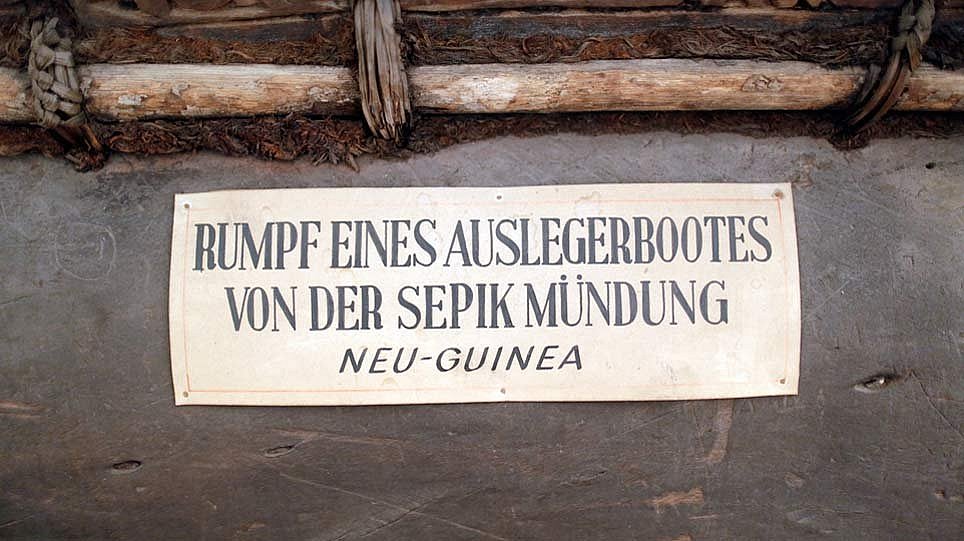 RUMPF EINES AUSLEGERBOOTES
VON DER SEPIK MÜNDUNG
NEU-GUINEA